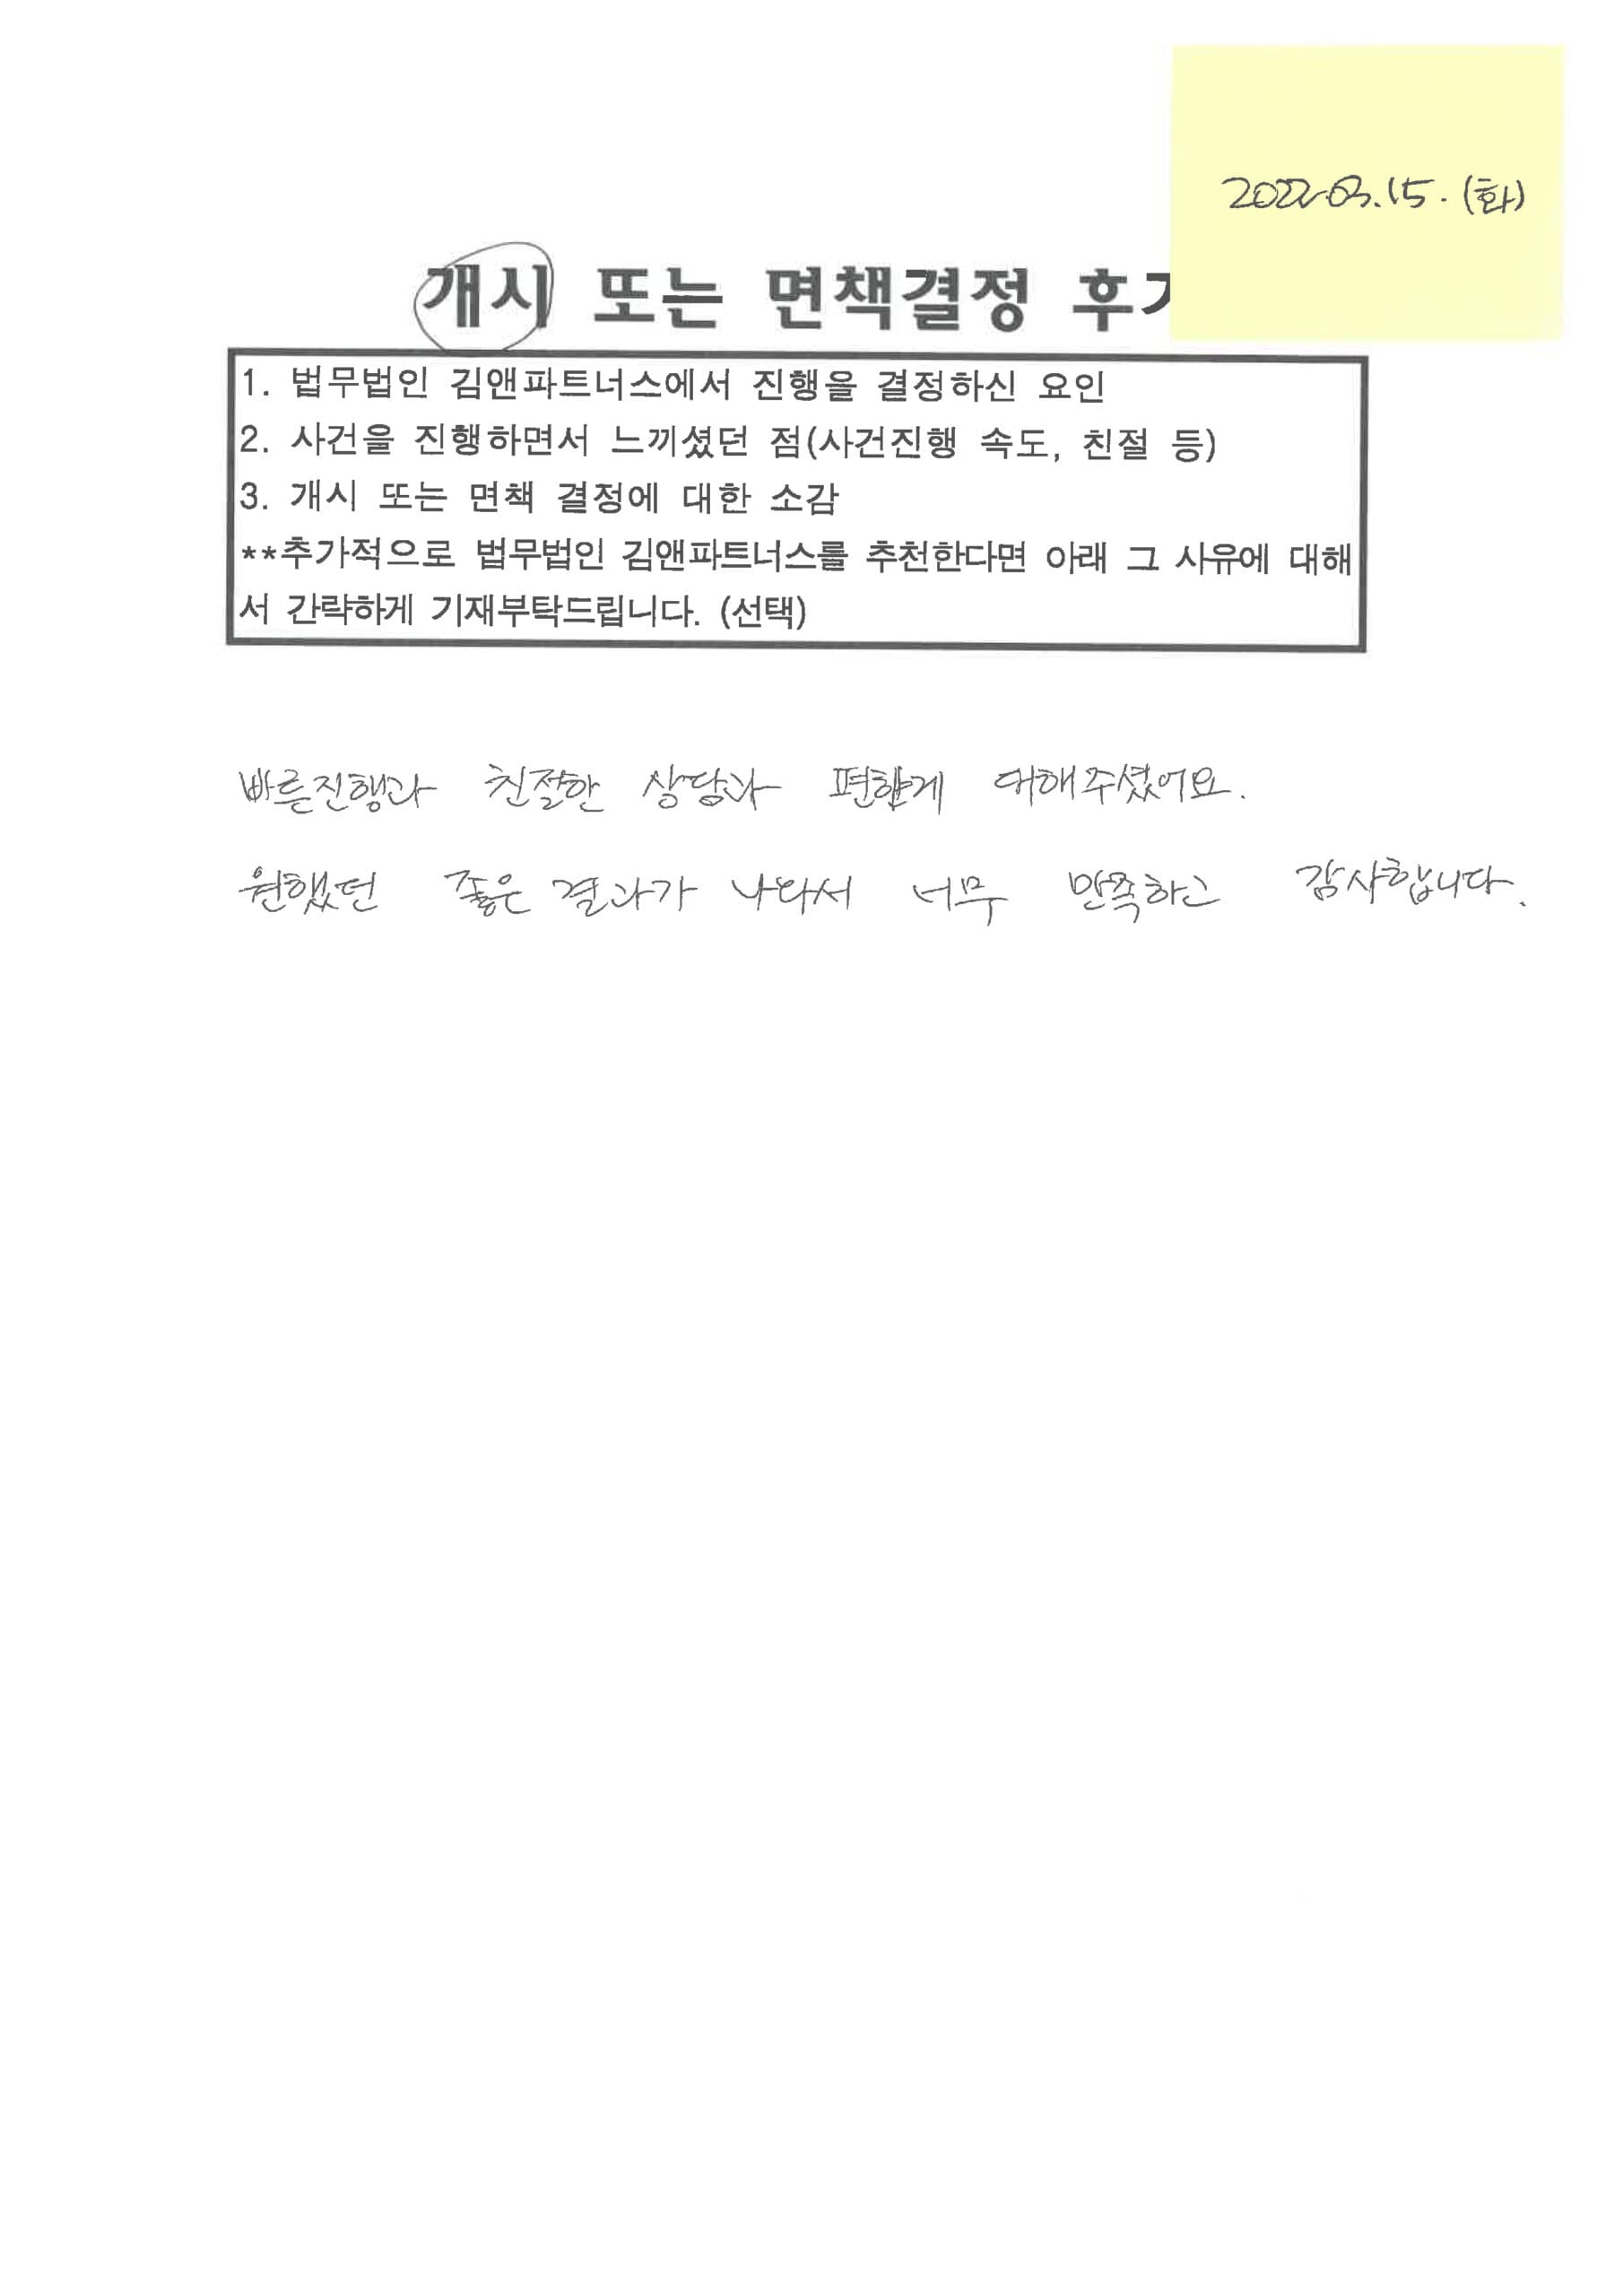 2022.03.15. (화)
개시 또는 면책결정 후기
1. 법무법인 김앤파트너스에서 진행을 결정하신 요인
2. 사건을 진행하면서 느끼셨던 점(사건진행 속도, 친절 등)
3. 개시 또는 면책 결정에 대한 소감
**추가적으로 법무법인 김앤파트너스를 추천한다면 아래 그 사유에 대해
서 간략하게 기재부탁드립니다. (선택)
빠른진행과 친절한 상담과 편하게 대해주셨어요.
원했던 좋은 결과가 나와서 너무 만족하고 감사합니다.